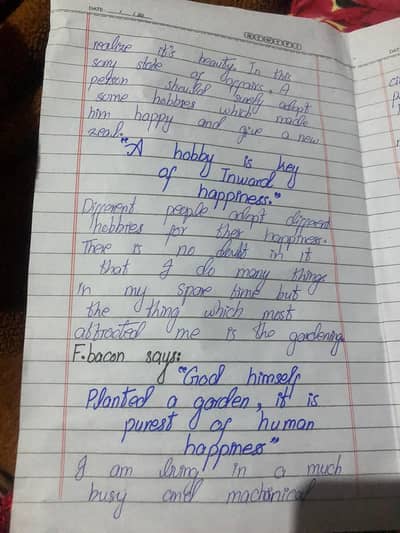 DATE: __/__/20__
realize it's beauty. In this
sorry state of affairs. A
person should surely adopt
some hobbies which made
him happy and give a new
zeal.
"A hobby is key
of Inward
happiness."
Different people adopt different
hobbies for ther happiness.
There is no doubt in it
that I do many things
In my spare time but
the thing which most
attracted me is the gardening
F.bacon says:
"God himself
Planted a garden, it is
purest of human
happiness"
I am living in a much
busy and machinical